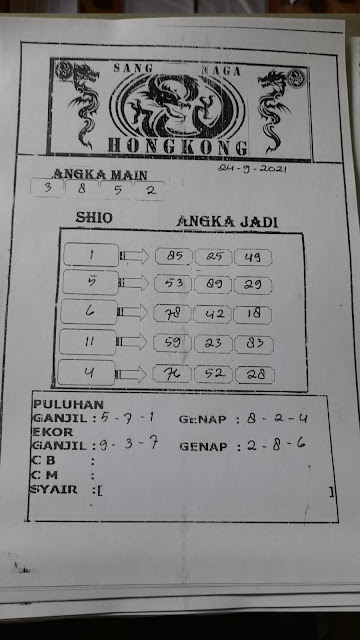 SANG NAGA
HONGKONG
24-9-2021
ANGKA MAIN
3 8 5 2
SHIO ANGKA JADI
1 85 25 49
5 53 89 29
6 78 42 18
11 59 23 83
4 76 52 28
PULUHAN
GANJIL : 5 - 7 - 1 GENAP : 8 - 2 - 4
EKOR
GANJIL : 9 - 3 - 7 GENAP : 2 - 8 - 6
C B :
C M :
SYAIR :[ ]